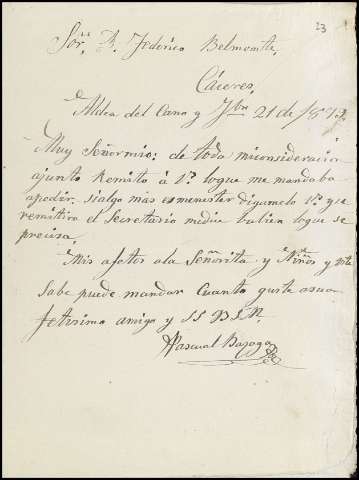 23
Sor. D. Federico Belmonte.
Cáceres,
Aldea del Cano y 21 de
Muy Señor mio: de toda miconsideracion
ajunto Remito á V.ª loque me mandaba
apedir. sialgo mas es menester digamelo V.ª y se
remitira el Secretario medice tulien loque se
precisa.
Mis afetos ala Señorita y Niños, y Vste
sabe puede mandar Cuanto guste asu
fetisimo amigo y S S B S M.
Pascual